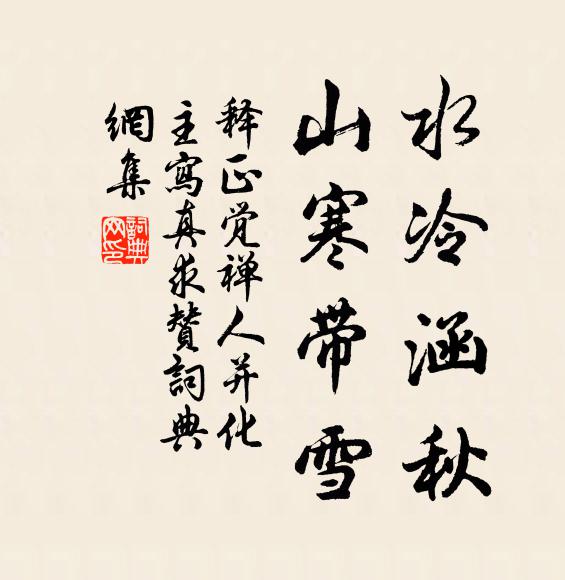 水冷涵秋
山寒带雪
释正觉禅人并化
主寫真求赞詞典
網集
詞典
网印